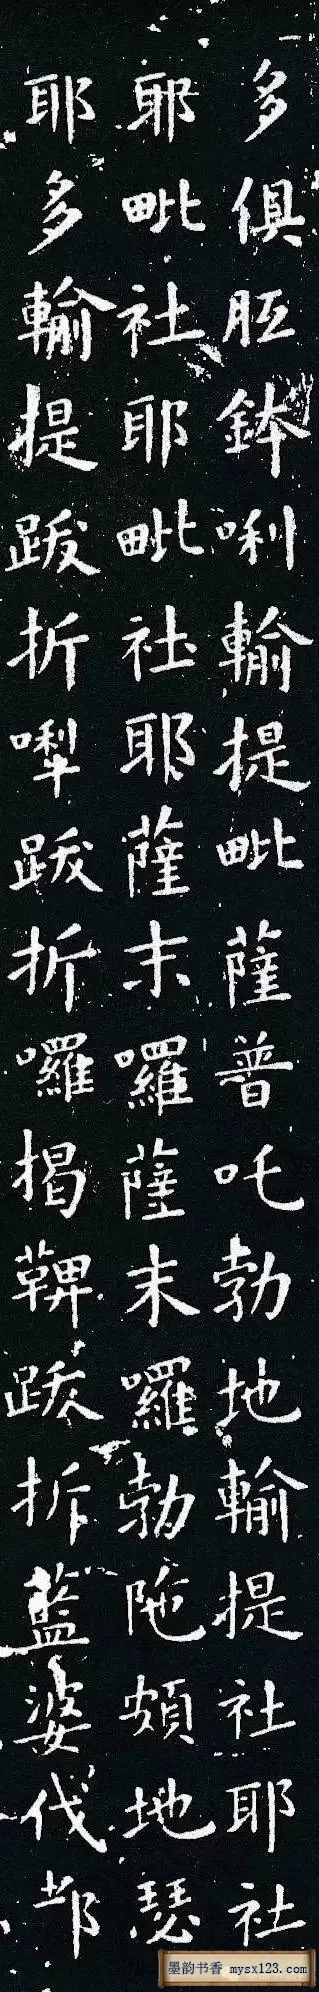 多俱胝鉢唎輸提毗薩普吒勃地輸提社耶社
耶毗社耶毗社耶薩末囉薩末囉勃陁頞地瑟
耶多輸提跋折㗚跋折囉揭鞞跋折藍婆伐都
墨韵书香 mysx123.com